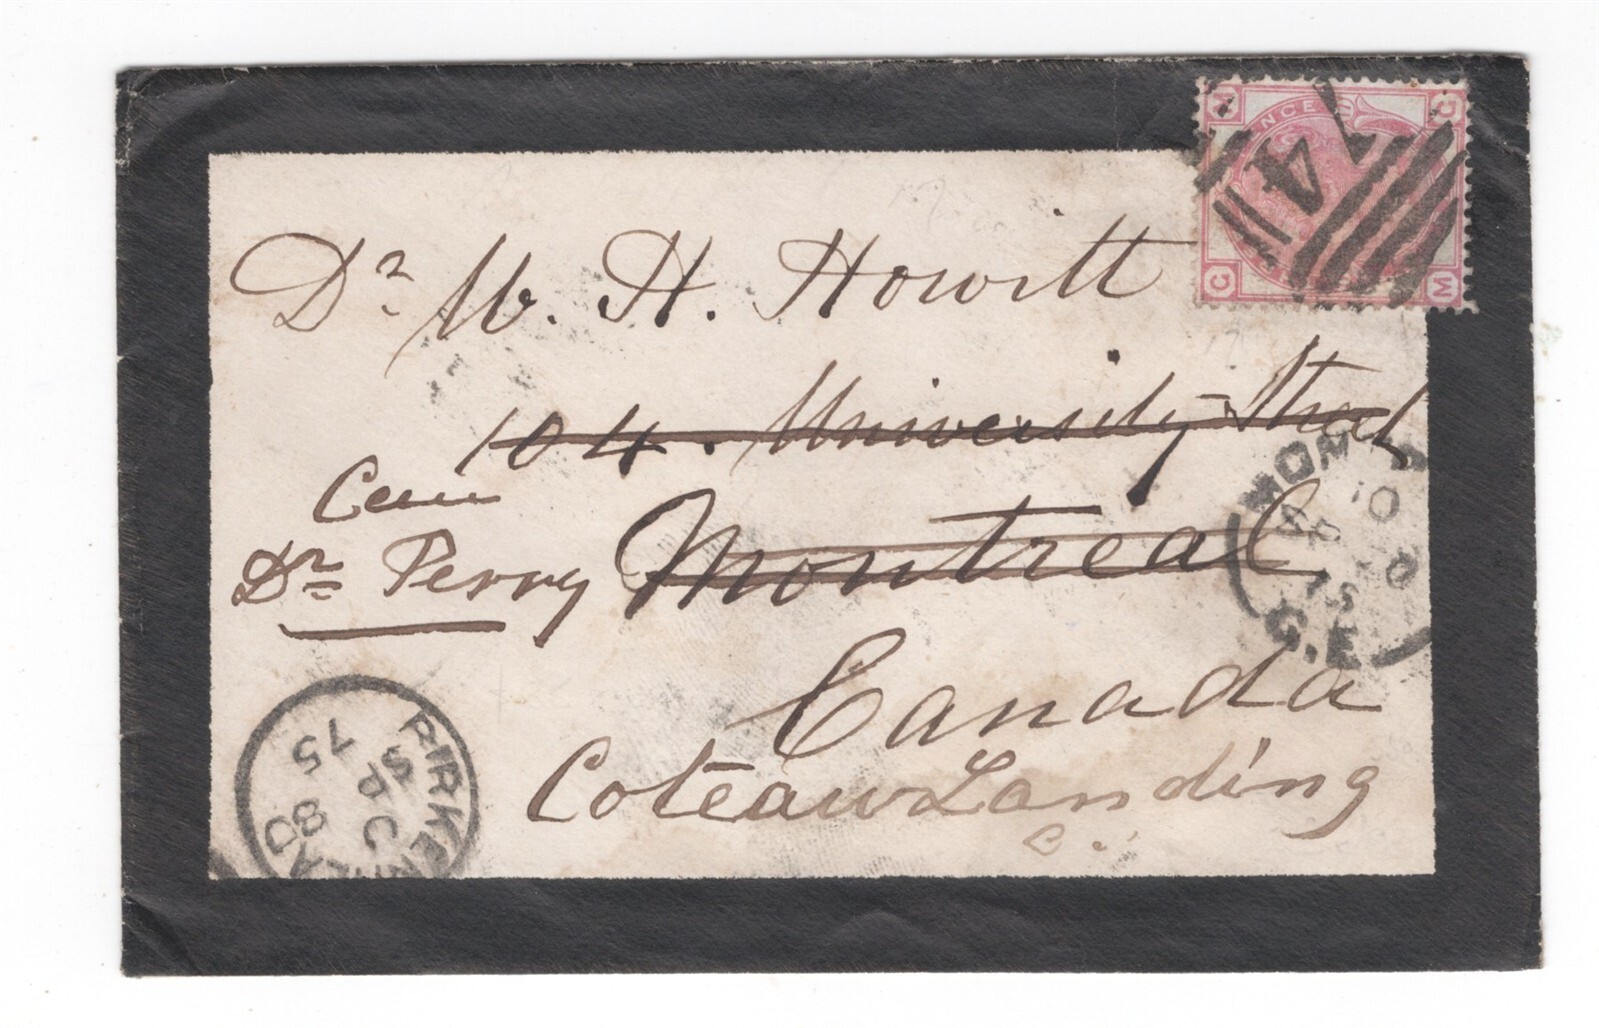 Dr W. H. Howitt
104. University Street
Care
Dr Perry Montreal
Canada
Coteau Landing
C.
74
M G
G M
BIRKENHEAD
C
SP 8
75
MON
10
SP
75
C.E